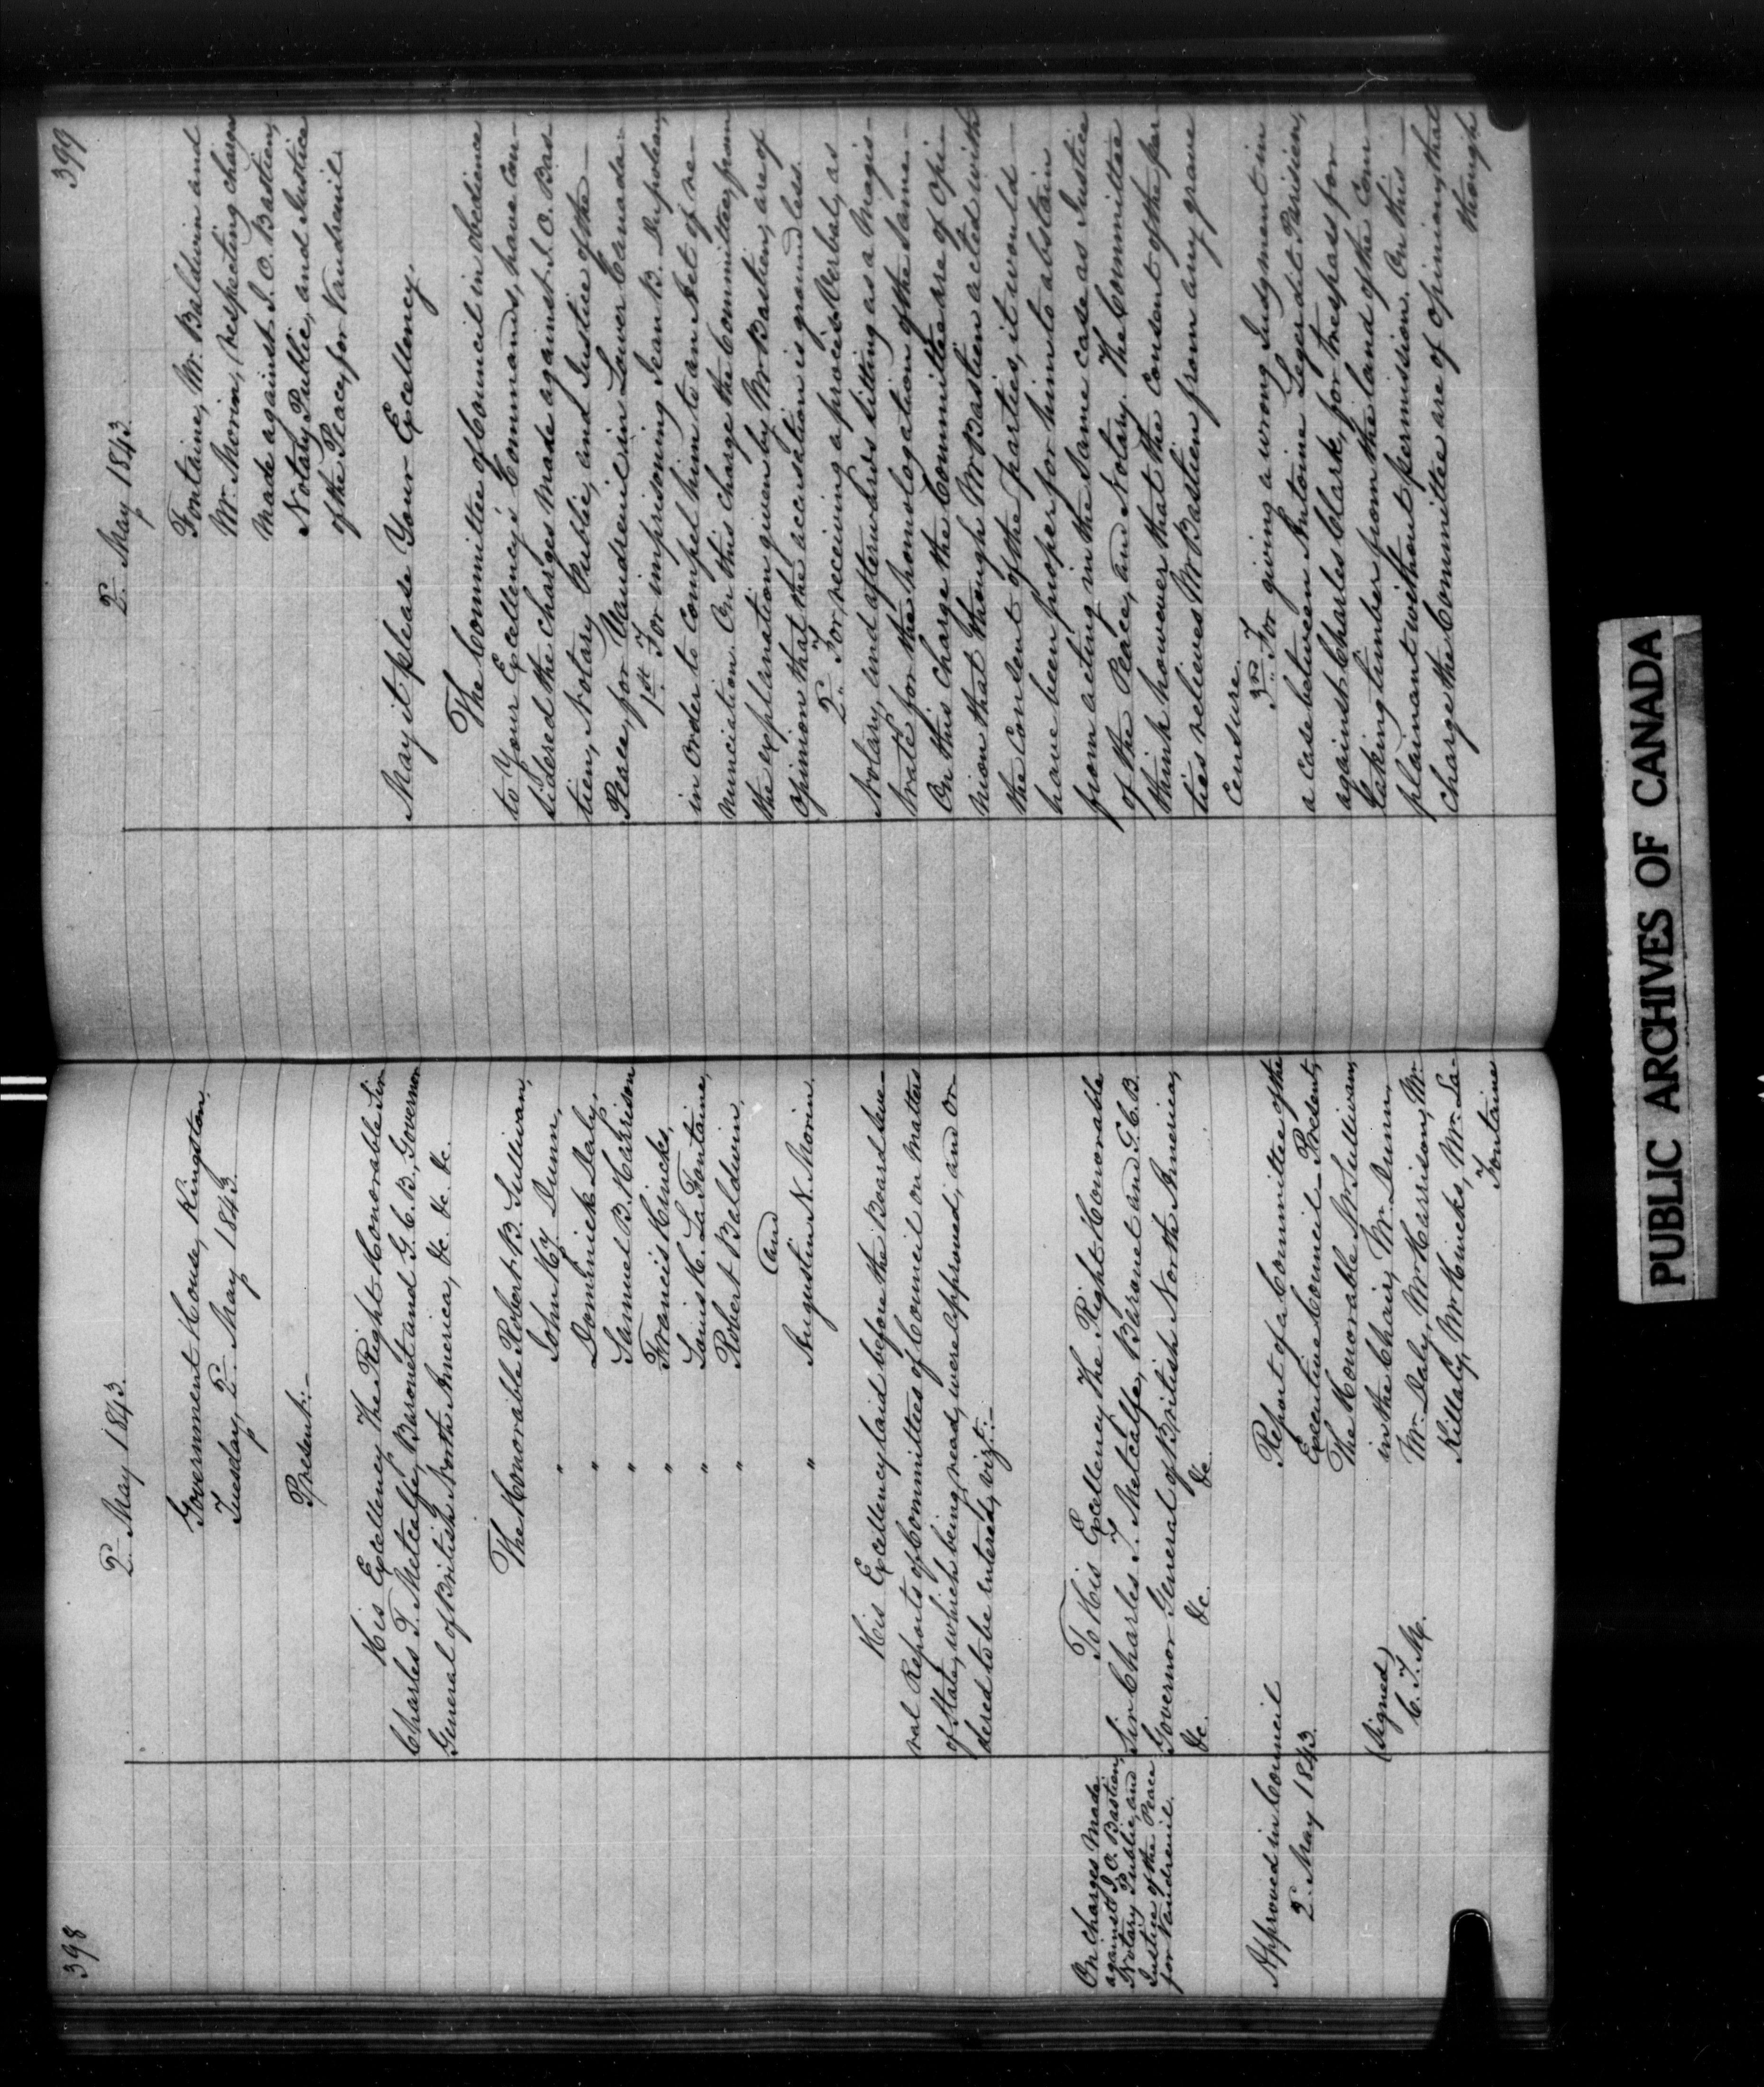 398
2d. May 1843.
Government House, Kingston,
Tuesday, 2d. May 1843.
Present:-
His Excellency The Right Honorable Sir
Charles T. Metcalfe, Baronet and G.C.B, Governor
General of British North America, &c. &c. &c.
The Honorable Robert B. Sullivan,
" John Hy. Dunn,
" Dominick Daly,
" Samuel B. Harrison
" Francis Hincks,
" Louis H. LaFontaine,
" Robert Baldwin,
and
" Augustin N. Morin.
His Excellency laid before the Board seve-
ral Reports of Committees of Council on Matters
of State, which being read, were approved, and or-
dered to be entered, vizt:-
On charges made
against J. O. Bastien,
Notary Public, and
Justice of the Peace
for Vaudreuil.
To His Excellency The Right Honorable
Sir Charles T. Metcalfe, Baronet and G.C.B.
Governor General of British North America,
&c. &c. &c.
Approved in Council
2d. May 1843.
(Signed)
C. T. M.
Report of a Committee of the
Executive Council - Present,
The Honorable Mr Sullivan,
in the Chair, Mr. Dunn,
Mr. Daly, Mr Harrison, Mr.
Killaly, Mr Hincks, Mr. La-
Fontaine
399
2d. May 1843.
Fontaine, Mr. Baldwin and
Mr. Morin, respecting charges
made against J. O. Bastien,
Notary Public, and Justice
of the Peace, for Vaudreuil.
May it please Your Excellency.
The Committee of Council in obedience
to Your Excellency's Commands, have con-
sidered the charges made against J. O. Bas-
tien, Notary Public, and Justice of the
Peace, for Vaudreuil in Lower Canada.
1st. For imprisoning Jean B. Dupoleau,
in order to compel him to an Act of re-
nunciation. On this charge the Committee, from
the explanation given by Mr Bastien, are of
opinion that the accusation is groundless.
2d. For receiving a procès Verbal, as
Notary, and afterwards sitting as a Magis-
trate for the homologation of the same.-
On this charge the Committee are of opi-
nion that though Mr Bastien acted with
the consent of the parties, it would
have been proper for him to abstain
from acting in the same case as Justice
of the Peace, and Notary. The Committee
think however that the consent of the par
ties relieves Mr Bastien from any grave
censure.
3d. For giving a wrong Judgment in
a case between Antoine Leger dit Parisien,
against Charles Clark, for trespass for
taking timber from the land of the Com-
plainant without permission. On this
charge the Committee are of opinion, that
though
PUBLIC ARCHIVES OF CANADA